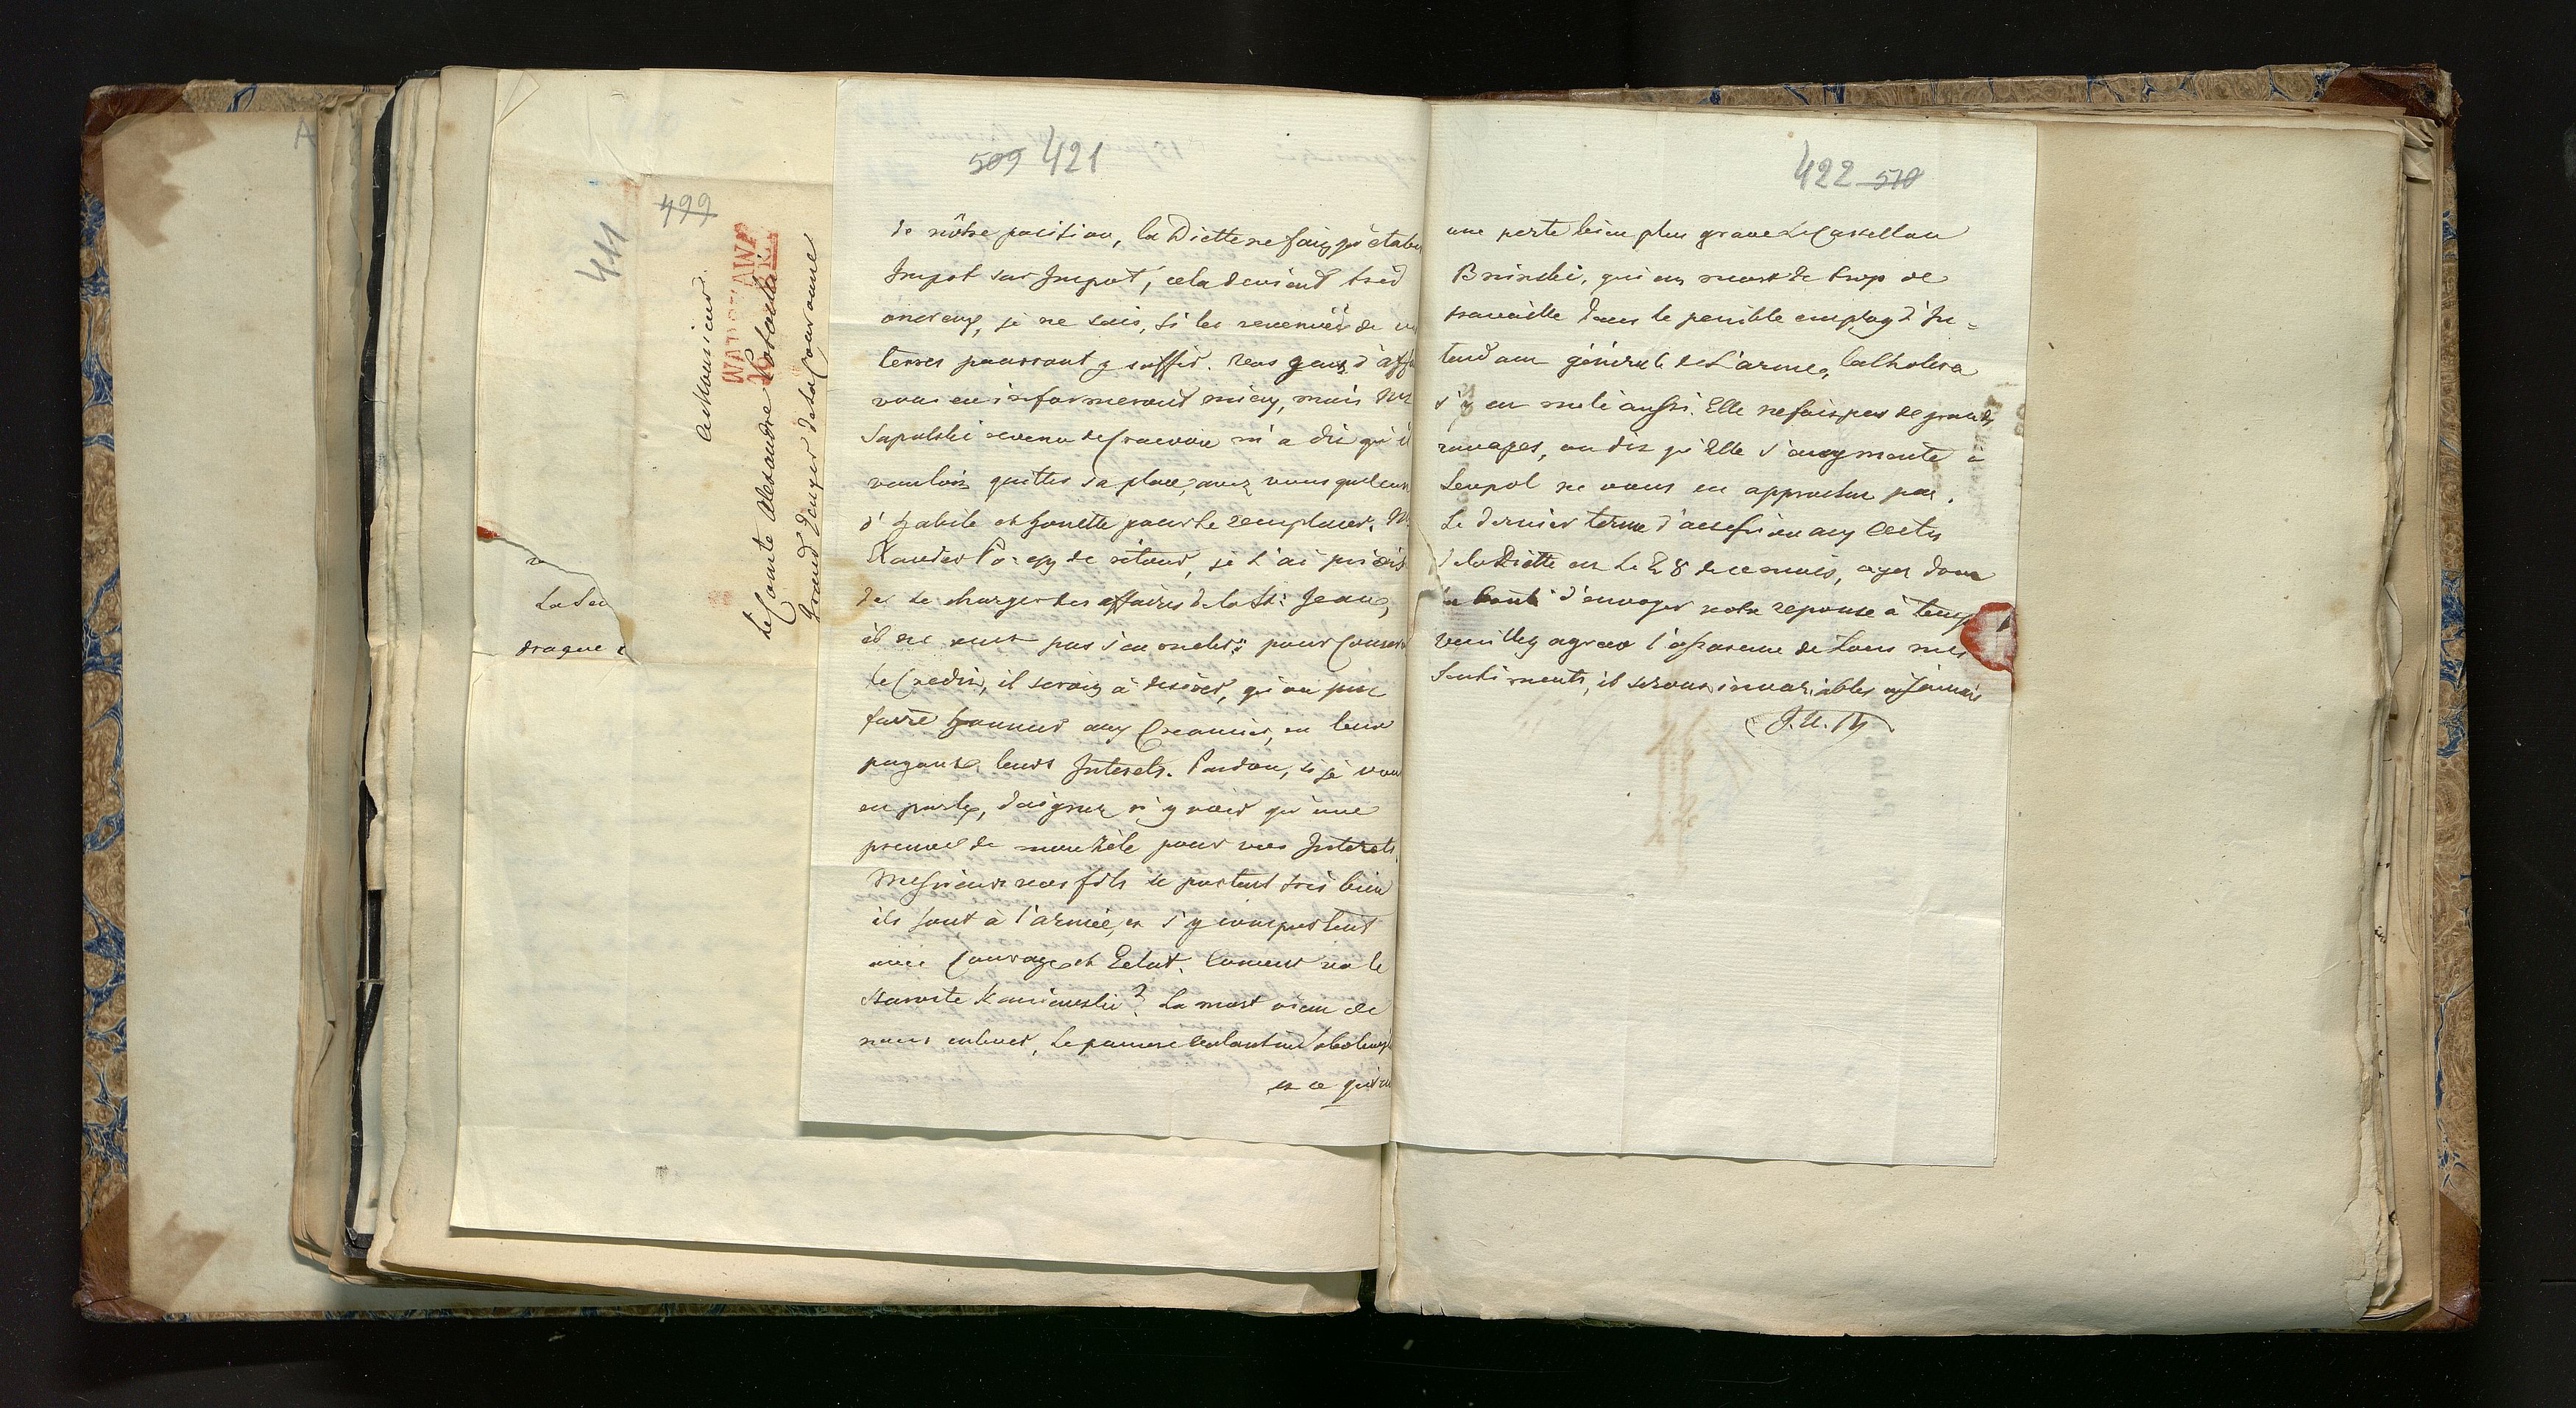 499
411
A Monsieur
WARSZAWA
Le Comte Alexandre Potocki
Grand Ecuyer de la Couronne
La Sed
dragues
509 421
de nôtre position, la Diette ne fait qu'etablir
Impot sur Impot, cela devient tres
onereux, je ne sais, si les revenues de vos
terres pourront y suffir. Vos gens d'affa
vous en informeront mieux, mais Mr
Sapalski revenu de Cracovie m'a dit qu'il
vouloit quitter sa place, avez vous quelcun
d'habile et honette pour le remplacer. Mr
de retour, je l'ai prié
de se charger des affaires de la St: Jean,
il ne veut pas s'en meler; pour Conserv
le Credit, il seroit à desirer, qu'on put
faire honneur aux Creancier, en leur
payant leurs Interets. Pardon, si je vous
en parle, daignez n'y voir qu'une
preuve de mon zèle pour vos Interets.
Messieurs vos fils se portent tres bien
ils sont à l'armée, et s'y comportent
avec Courage et Eclat. Coment va le
Staroste Kaniowski? La mort vient de
nous enlever, le pauvre Valantin
et ce qui est
422 510
une perte bien plus grave Le Castellan
Bninski, qui est mort de trop de
travaille dans le penible employ d'In=
tendant général de L'armée, la Cholera
s'y en melé aussi. Elle ne fait pas de grands
ravages, on dit qu'Elle s'augmente a
Leopol ne vous en approchez pas.
Le dernier terme d'accession aux Actes
de la Diette est Le 28 de ce mois, ayez donc
la bonté d'envoyer votre reponse à temps
veuillez agreer l'assurance de tous mes
Sentiments, il seront invariables a Jamais
J. U. N